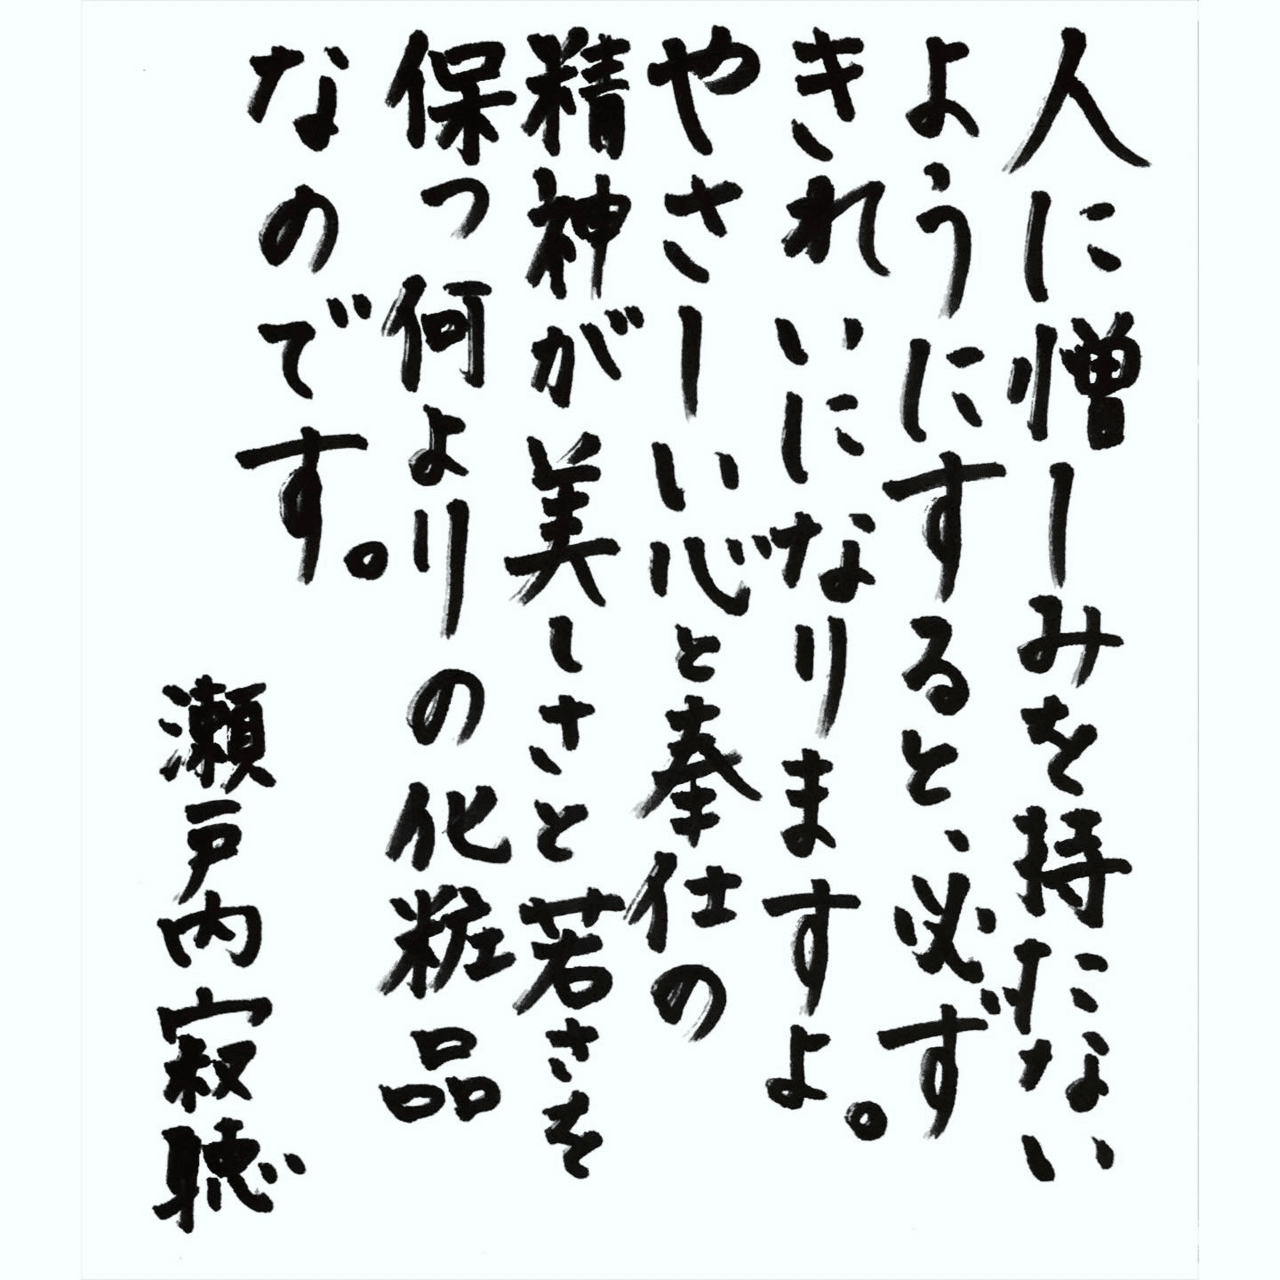 人に憎しみを持たない
ようにすると、必ず
きれいになりますよ。
やさしい心と奉仕の
精神が美しさと若さを
保つ何よりの化粧品
なのです。
瀬戸内寂聴